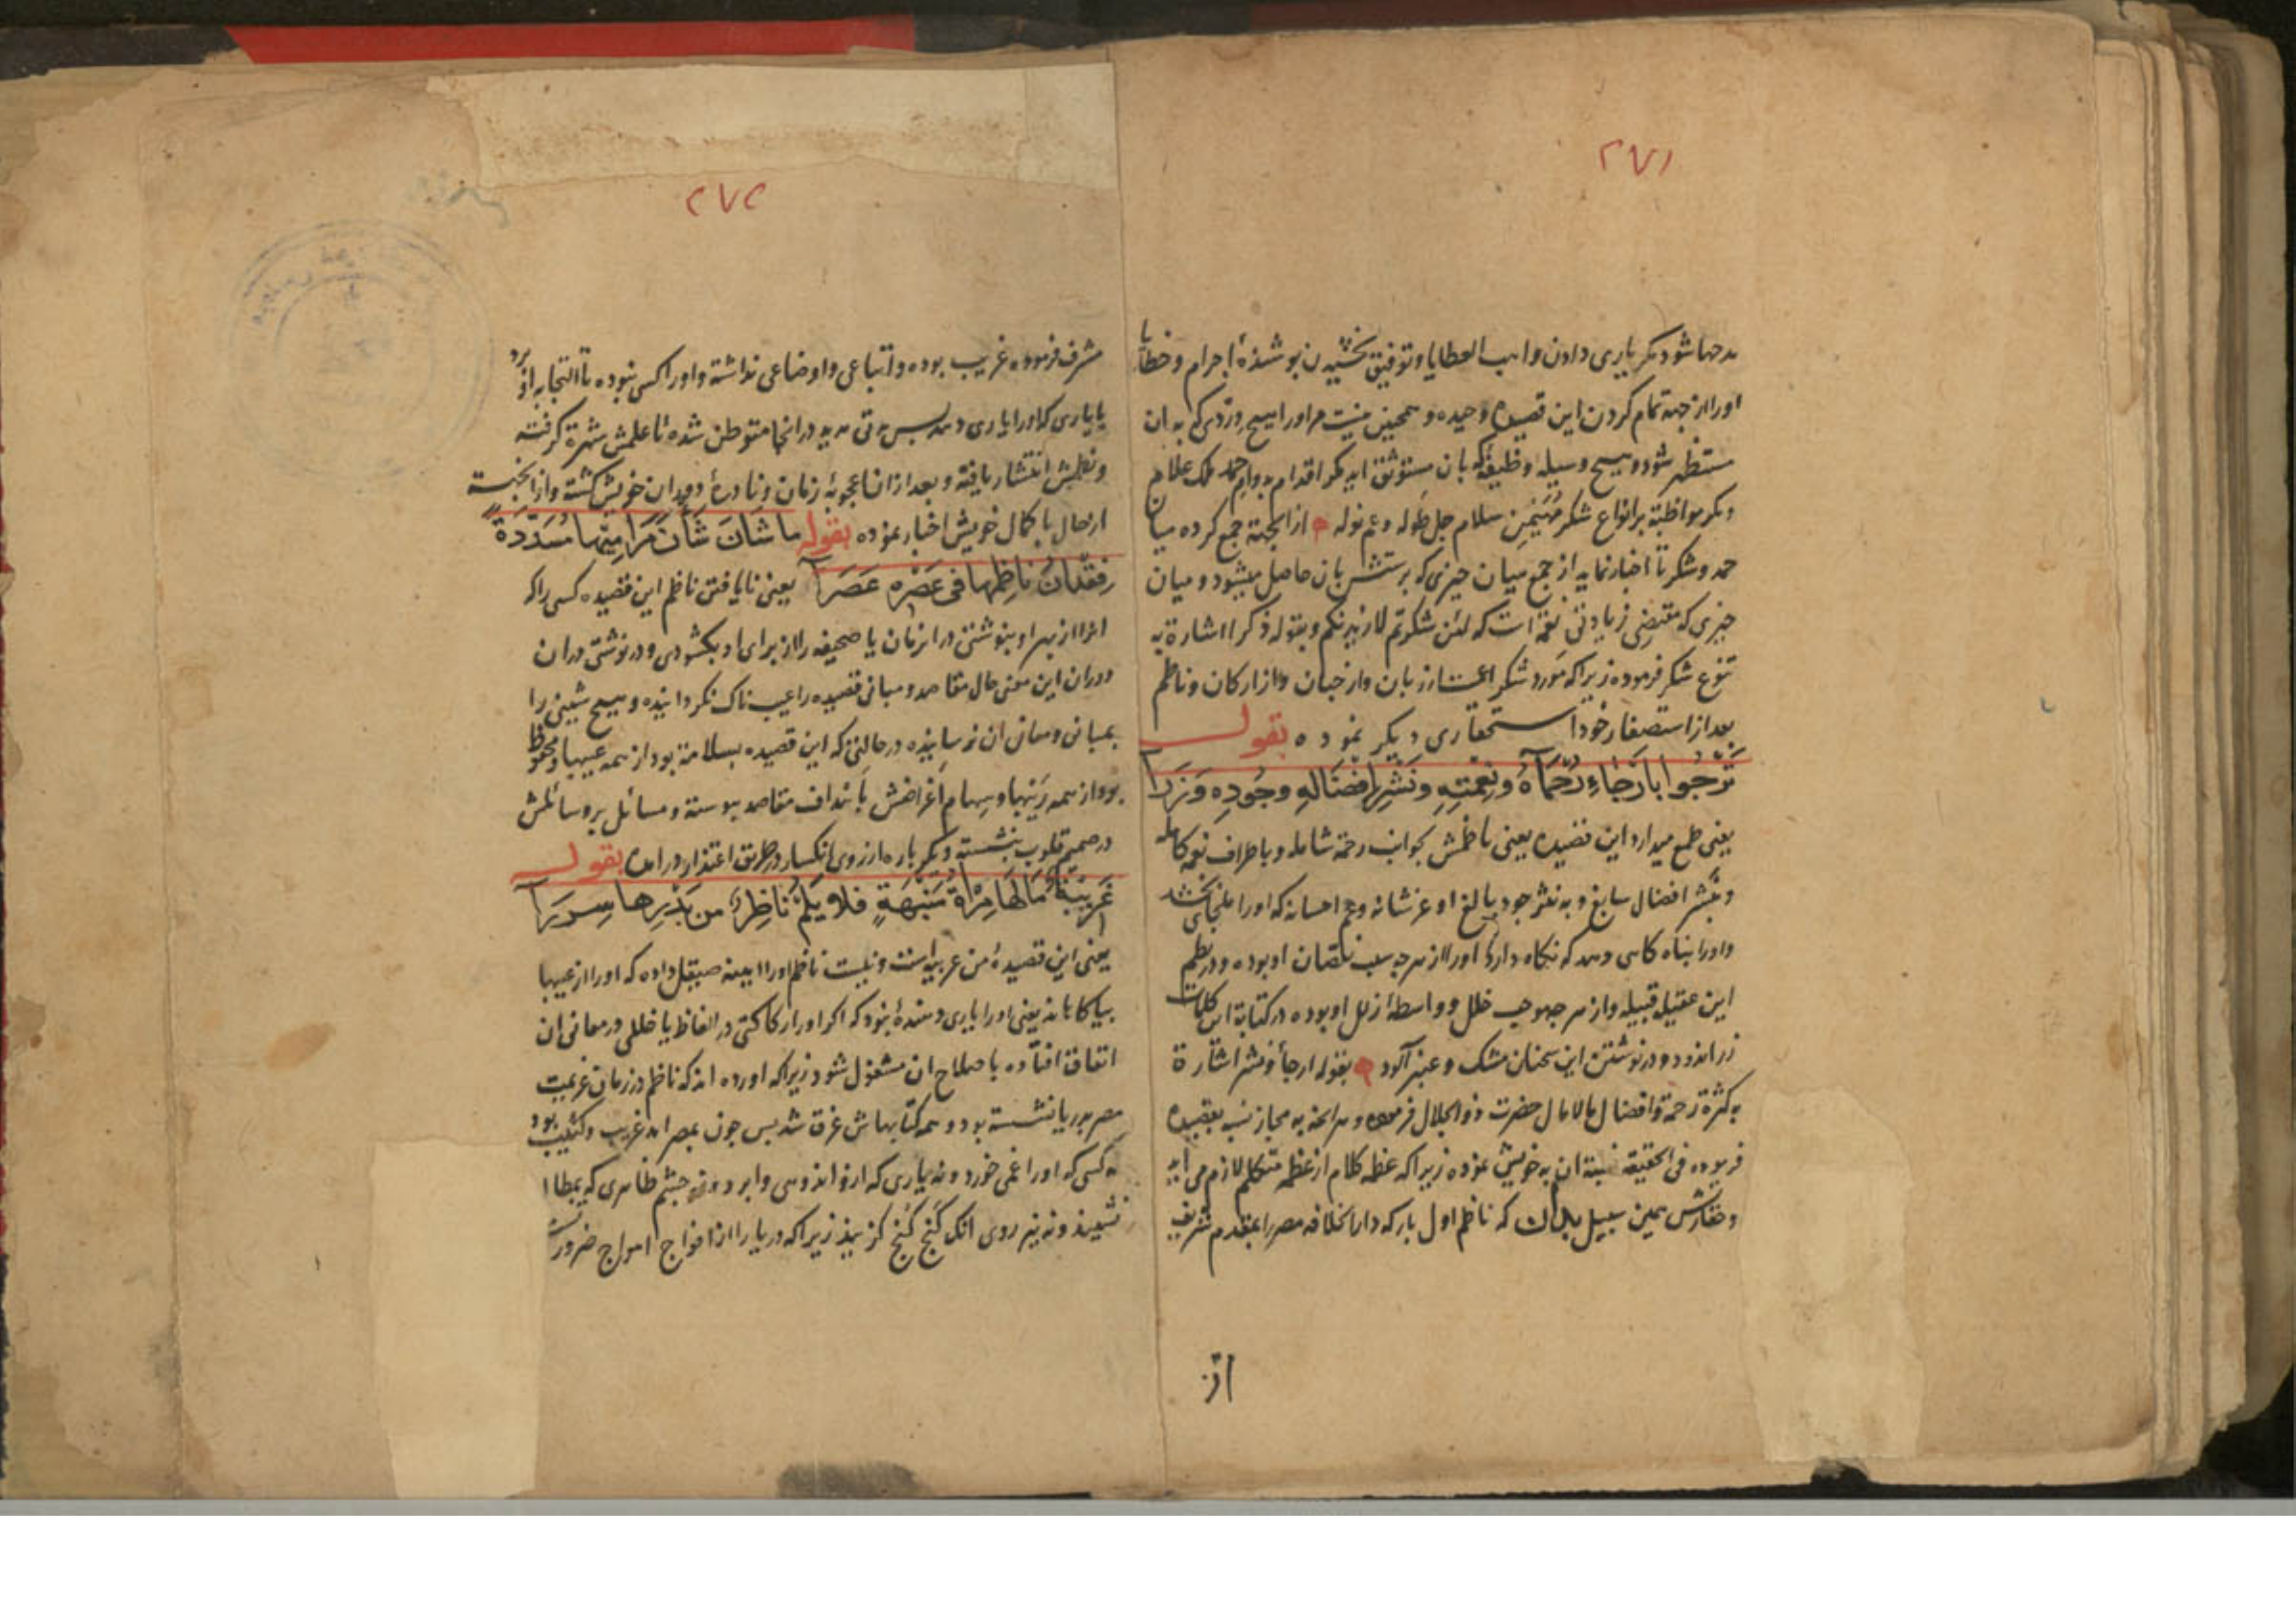 ٢٧١
مدحها شود مکر یاری دادن واهب العطایا و توفیق بخشیدن پوشندهٔ اجرام و خطایا
اورا از جهة تمام کردن این قصیدهٔ وحیده و همچنین نیست مر اورا هیچ وردی که به ان
مستظهر شود و هیچ وسیله وظیفهٔ که بان مستوثق اید مکر اقدام بدوام حمد ملک علام
و مکر مواظبة بر انواع شکر سلام جل طوله و عم نوله از انجهة جمع کرده میان
حمد و شکر تا اخبار نماید از جمع میان چیزی که بان حاصل میشود و میان
چیزی که مقتضی زیادتی نعمة است که لئن شکرتم لازیدنکم و بقوله ذکرا اشارة به
تنوع شکر فرموده زیرا که مورد شکر از زبان و از جنان و از ارکان و ناظم
بعد از استصغار خود استحقاری دیکر نموده بقولـــه
تَرْجُوا بِاَرْجَاءِ رُحْمَاهُ وَنِعْمَتِهِ وَنَشْرِ اِفْضَالِهِ وَجُودِهِ وَزَرَا
یعنی طمع میدارد این قصیده یعنی ناظمش بجوانب رحمة شامله و باطراف نعم کامله
و بنشر افضال سابغ و به نشر جود بالغ او عز شانه و عم احسانه که اورا ملجای بخشد
و اورا پناه کاهی دهد که نکاه دارد اورا از هرچه سبب نقصان او بوده در نظم
این عقیلهٔ قبیله و از هرچه موجب خلل و واسطهٔ زلل او بوده در کتابة این کلمات
زراندود و در نوشتن این سخنان مشک و عنبر آلود بقوله ارجاء و نشر اشارة
به کثرة رحمة و افضال مالامال حضرت ذو الجلال فرموده و هر انچه به مجاز نسبه بقصیده
فرموده فی الحقیقة نسبة ان به خویش نموده زیرا که عظمه کلام از عظمه متکلم لازم می اید
سبیل بدان که ناظم اول بار که دار الخلافه مصر را بمقدم شریف
از
٢٧٢
مشرف فرموده غریب بوده و اتباعی و اوضاعی نداشته و اورا کسی نبوده تا التجا به او برد
یا یاری که اورا یاری دهد پس مدتی مدید در انجا متوطن شده تا علمش شهرة کرفته
و نظمش انتشار یافته و بعد ازان اعجوبهٔ زمان و نادرهٔ دوران خویش کشته و از انجهة
از حال با کمال خویش اخبار نموده بقوله مَا شَانَ شَانَ مَرَامِيْهَا مُسَدَّدَةً
فِقْدَانُ نَاظِمِهَا فِي عَصْرِهِ عَصَرَا یعنی نایافتن ناظم این قصیده کسی را که
انرا از بهر او بنوشتن در ان زمان یا صحیفه را از برای او بکشودی و در نوشتی دران
دوران این معنی حال مقاصد و مبانی قصیده را عیب ناک نکردانیده و هیچ شینی را
بمبانی و معانی ان نرسانیده در حالتی که این قصیده بسلامة بود از همه عیبها و محفوظ
بود از همه و سهام اغراضش باهداف مقاصد پیوسته و مسائل بر وسائلش
در صمیم قلوب بنشسته و دیکر باره از روی انکسار در طریق اعتذار در امده بقولـــه
غَرِيْبَةٌ مَالَهَا مِرْآةُ مَنْبَهَةٍ فَلَا يَلُمْ نَاظِرٌ مِنْ بَدْرِهَا سِرَرَا
یعنی این قصیدهٔ من غریبه است و نیست ناظم اورا ایینه صیقل داده که اورا از عیبها
بیاکاهاند یعنی اورا یاری دهندهٔ نبود که اکر اورا رکاکتی در الفاظ یا خللی در معانی ان
اتفاق افتاده باصلاح ان مشغول شود زیرا که اورده اند که ناظم در زمان عزیمت
مصر بدریا نشسته بود و همه کتابهاش غرق شد پس چون بمصر امد غریب و کئیب بود
نه کسی که اورا غمی خورد و نه یاری که ارو اندوهی وابرد چشم ظاهری که بمطالعه
نشیند و نه نیز روی انک کنج کنج کزیند زیرا که دریا را از افواج امواج ضرورت